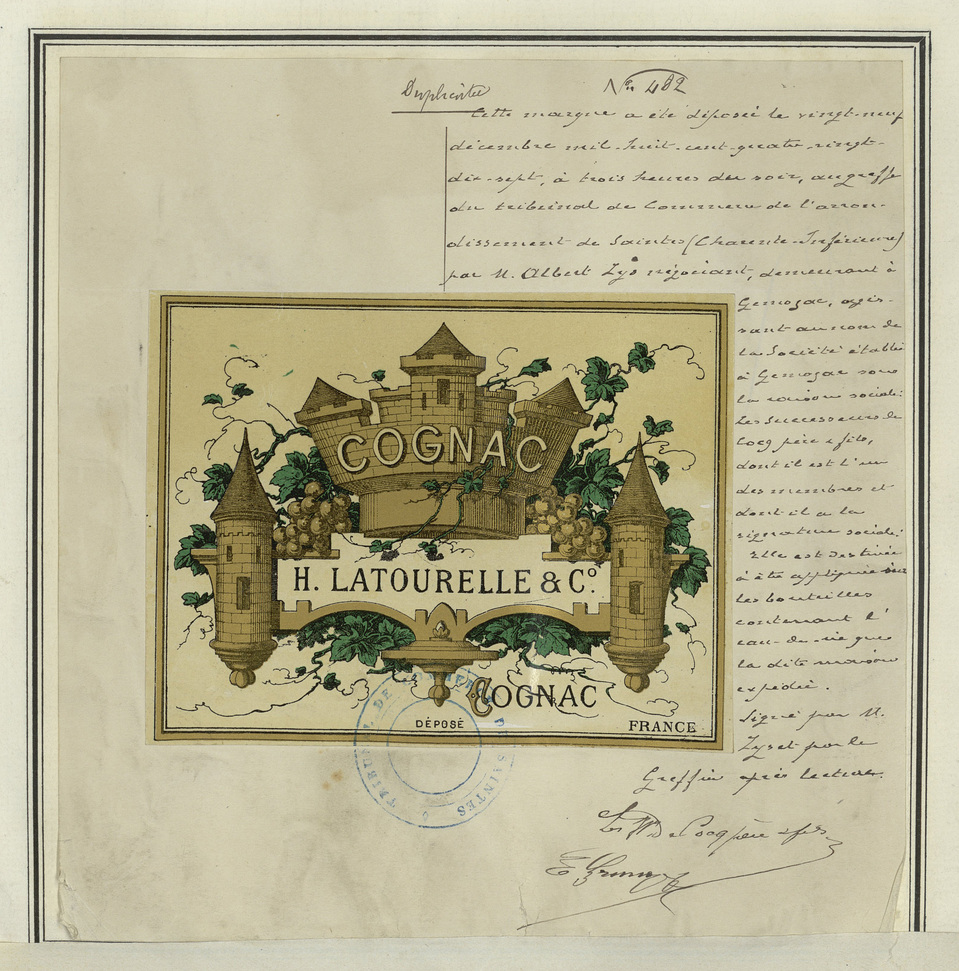 Duplicata
Nº 482
Cette marque a été déposée le vingt-neuf
décembre mil-huit-cent-quatre-vingt-
dix-sept, à trois heures du soir, au greffe
du tribunal de Commerce de l'arron-
dissement de Saintes (Charente-Inférieure)
par M. Albert Zys négociant, demeurant à
Gemozac, agis-
sant au nom de
la Société établie
à Gemozac sous
la raison sociale:
Les Successeurs de
Cocq père & fils,
dont il est l'un
des membres et
dont il a la
signature sociale:
Elle est destinée
à être appliquée sur
les bouteilles
contenant l'
eau-de-vie que
la dite maison
expédie.
Signé par M.
Zys et par le
Greffier après lecture.
COGNAC
H. LATOURELLE & Cº.
COGNAC
DÉPOSÉ
FRANCE
TRIBUNAL DE COMMERCE DE SAINTES
de Cocq père & fils